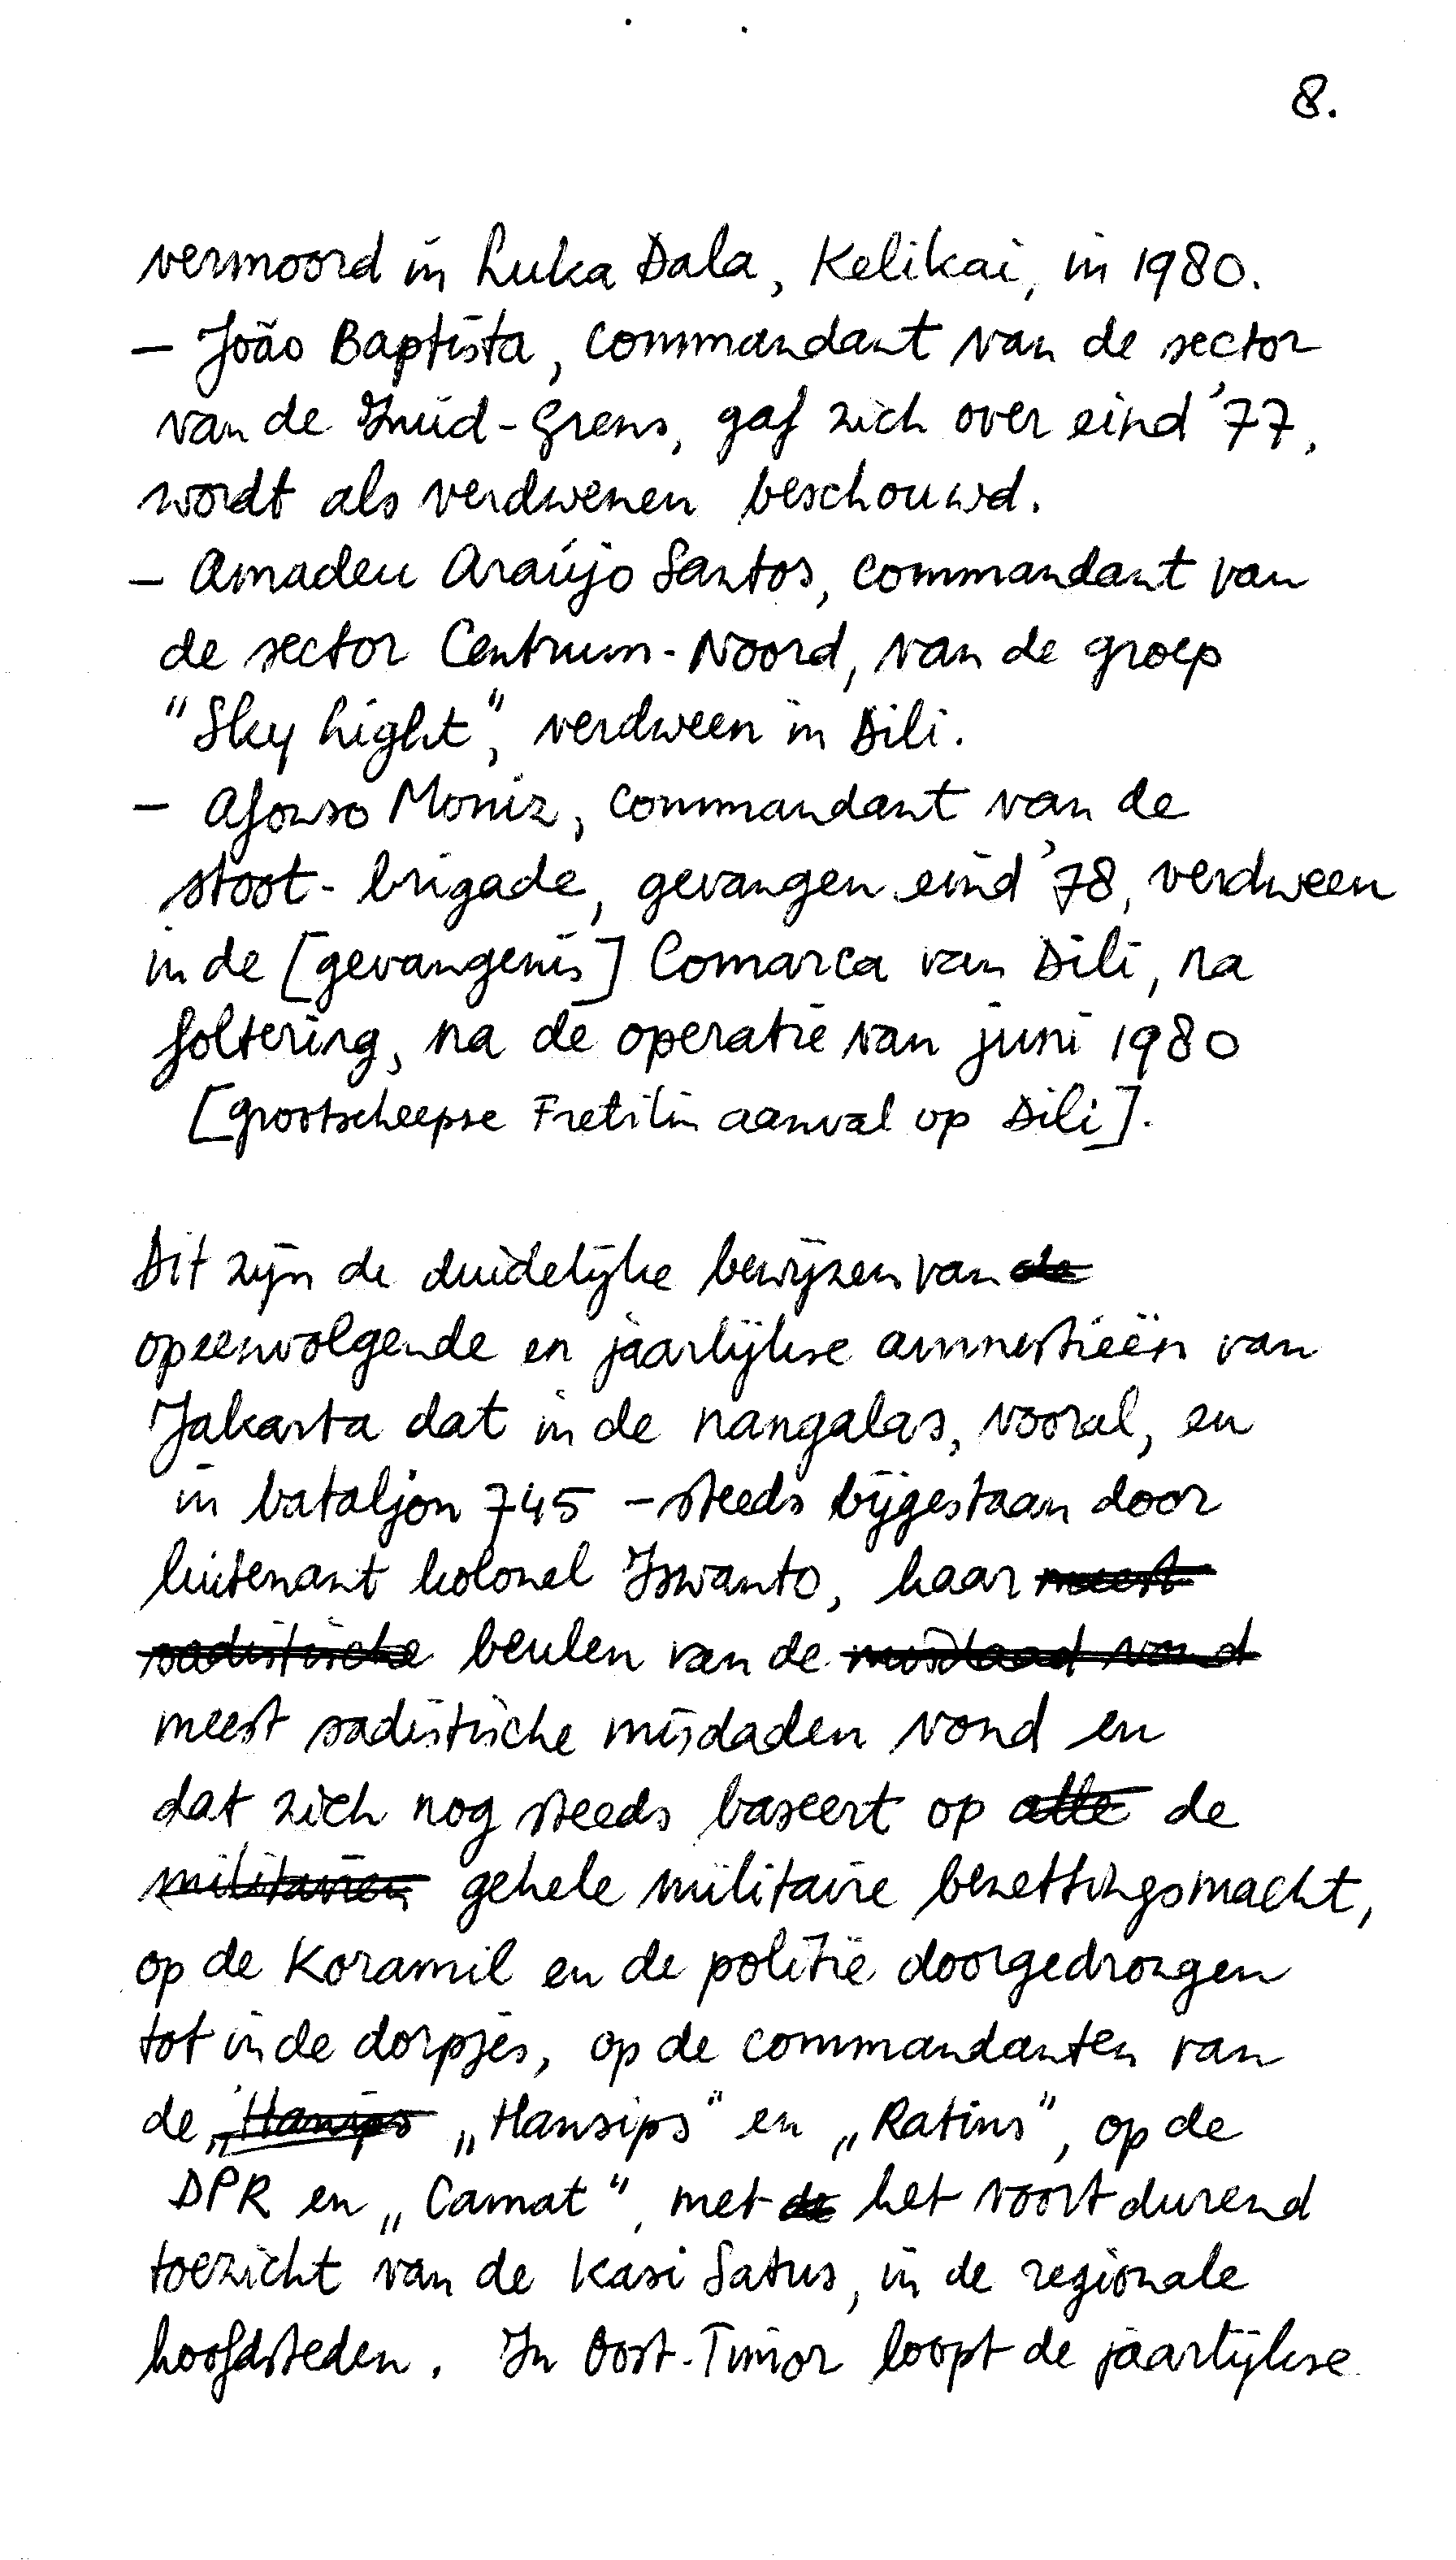 8.
vermoord in Luka Dala, Kelikai, in 1980.
– João Baptista, commandant van de sector
van de Zuid-Grens, gaf zich over eind '77,
wordt als verdwenen beschouwd.
– Amadeu Araújo Santos, commandant van
de sector Centrum-Noord, van de groep
"Sky Light", verdween in Dili.
– Afonso Moniz, commandant van de
stoot-brigade, gevangen eind '78, verdween
in de [gevangenis] Comarca van Dili, na
foltering, na de operatie van juni 1980
[grootscheepse Fretilin aanval op Dili].
Dit zijn de duidelijke bewijzen van de
opeenvolgende en jaarlijkse amnestieën van
Jakarta dat in de nangalas, vooral, en
in bataljon 745 – steeds bijgestaan door
luitenant kolonel Iswanto, haar meest
sadistische beulen van de misdaad vond
meest sadistische misdaden vond en
dat zich nog steeds baseert op alle de
militairen gehele militaire bezettingsmacht,
op de Koramil en de politie doorgedrongen
tot in de dorpjes, op de commandanten van
de „Hansips „Hansips" en „Ratins", op de
DPR en „Camat", met de het voortdurend
toezicht van de Kasi Satus, in de regionale
hoofdsteden. In Oost-Timor loopt de jaarlijkse